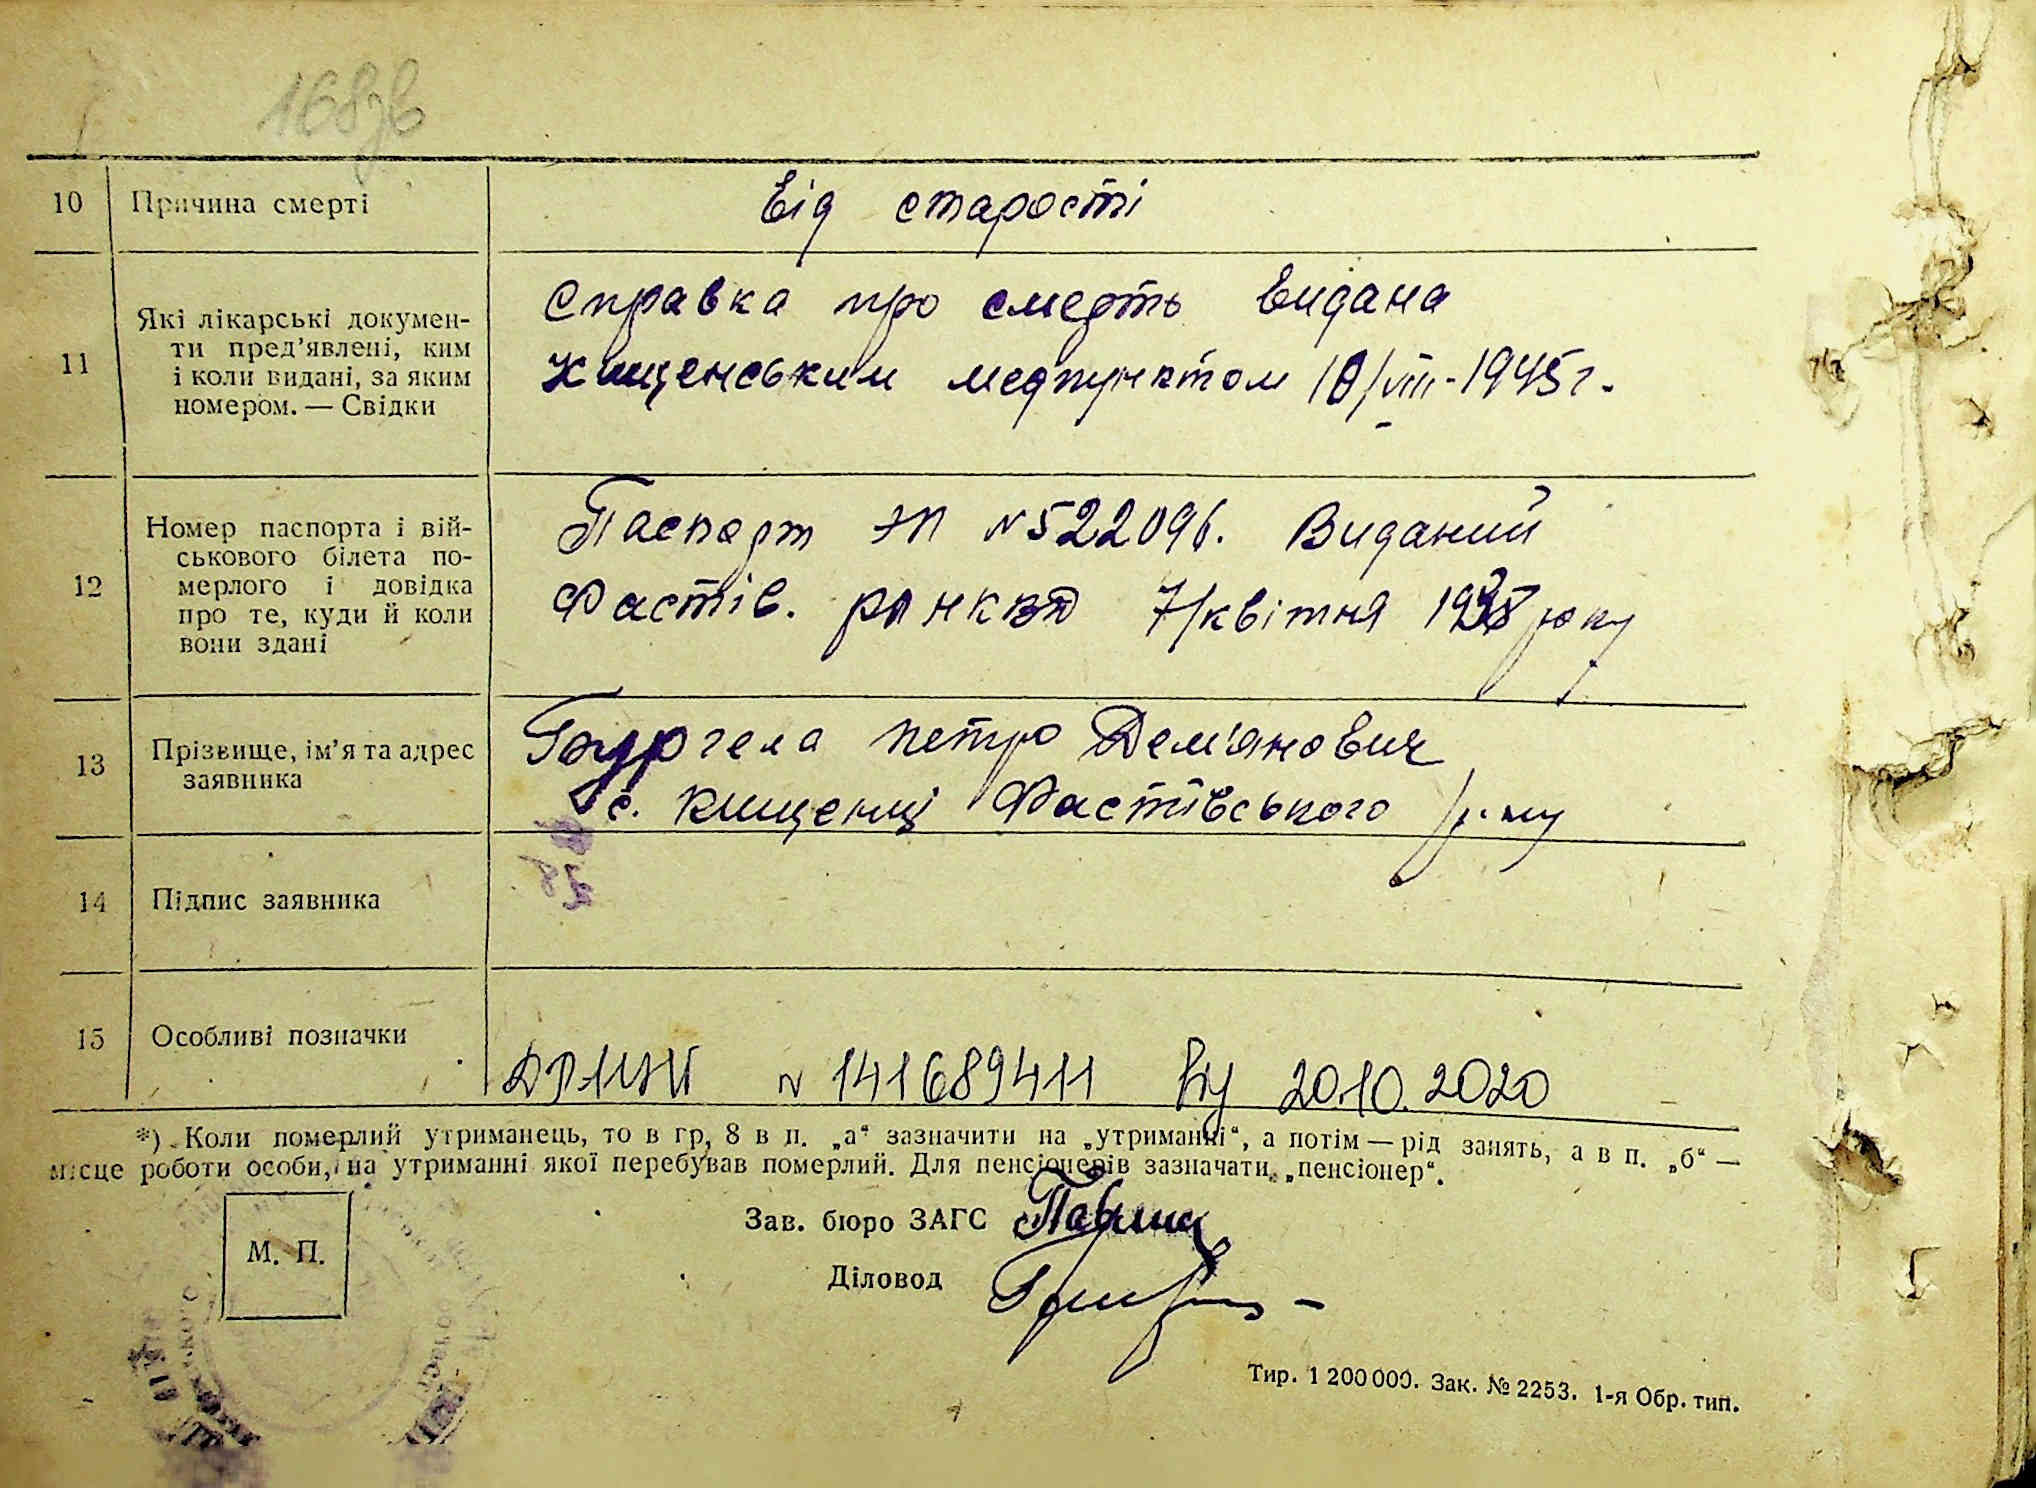 168зв
10 Причина смерті Від старості
11 Які лікарські докумен-
ти пред’явлені, ким
і коли видані, за яким
номером. — Свідки
Справка про смерть видана
Кищенським медпунктом 10/VIII-1945 г.
12 Номер паспорта і вій-
ськового білета по-
мерлого і довідка
про те, куди й коли
вони здані
Паспорт ЭП N 522096. Виданий
Фастів. РО НКВД 7/квітня 1938 року
13 Прізвище, ім’я та адрес
заявника
Петро Дем'янович
с. Кищенці Фастівського р-ну
14 Підпис заявника
15 Особливі позначки
N 141689411 20.10.2020
*) Коли померлий утриманець, то в гр, 8 в п. „а“ зазначити на „утриманні“, а потім — рід занять, а в п. „б“ —
місце роботи особи, на утриманні якої перебував померлий. Для пенсіонерів зазначати „пенсіонер“.
М. П.
Зав. бюро ЗАГС
Діловод
Тир. 1 200 000. Зак. № 2253. 1-я Обр. тип.